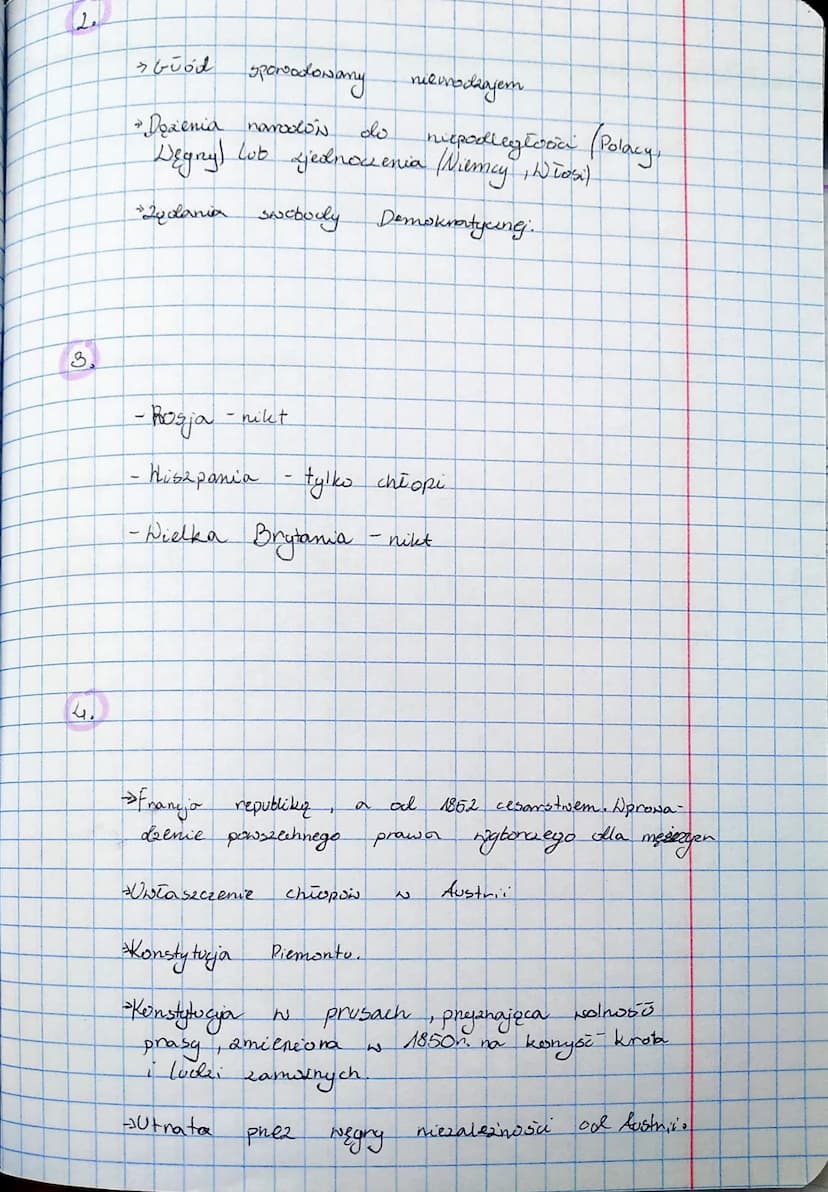 2.
→ Głód spowodowany nieurodzajem
→ Dążenia narodów do niepodległości (Polacy,
Węgrzy) lub zjednoczenia (Niemcy, Włosi)
→ Żądania swobody Demokratycznej.
3.
- Rosja - nikt
- Hiszpania - tylko chłopi
- Wielka Brytania - nikt
4.
→ Francja republiką, a od 1852 cesarstwem. Wprowa-
dzenie powszechnego prawa wyborczego dla mężczyzn
→ Uwłaszczenie chłopów w Austrii
→ Konstytucja Piemontu.
→ Konstytucja w prusach, przyznająca wolność
prasy, zmieniona w 1850r. na korzyść króla
i ludzi zamożnych.
→ Utrata przez węgry niezależności od Austrii.